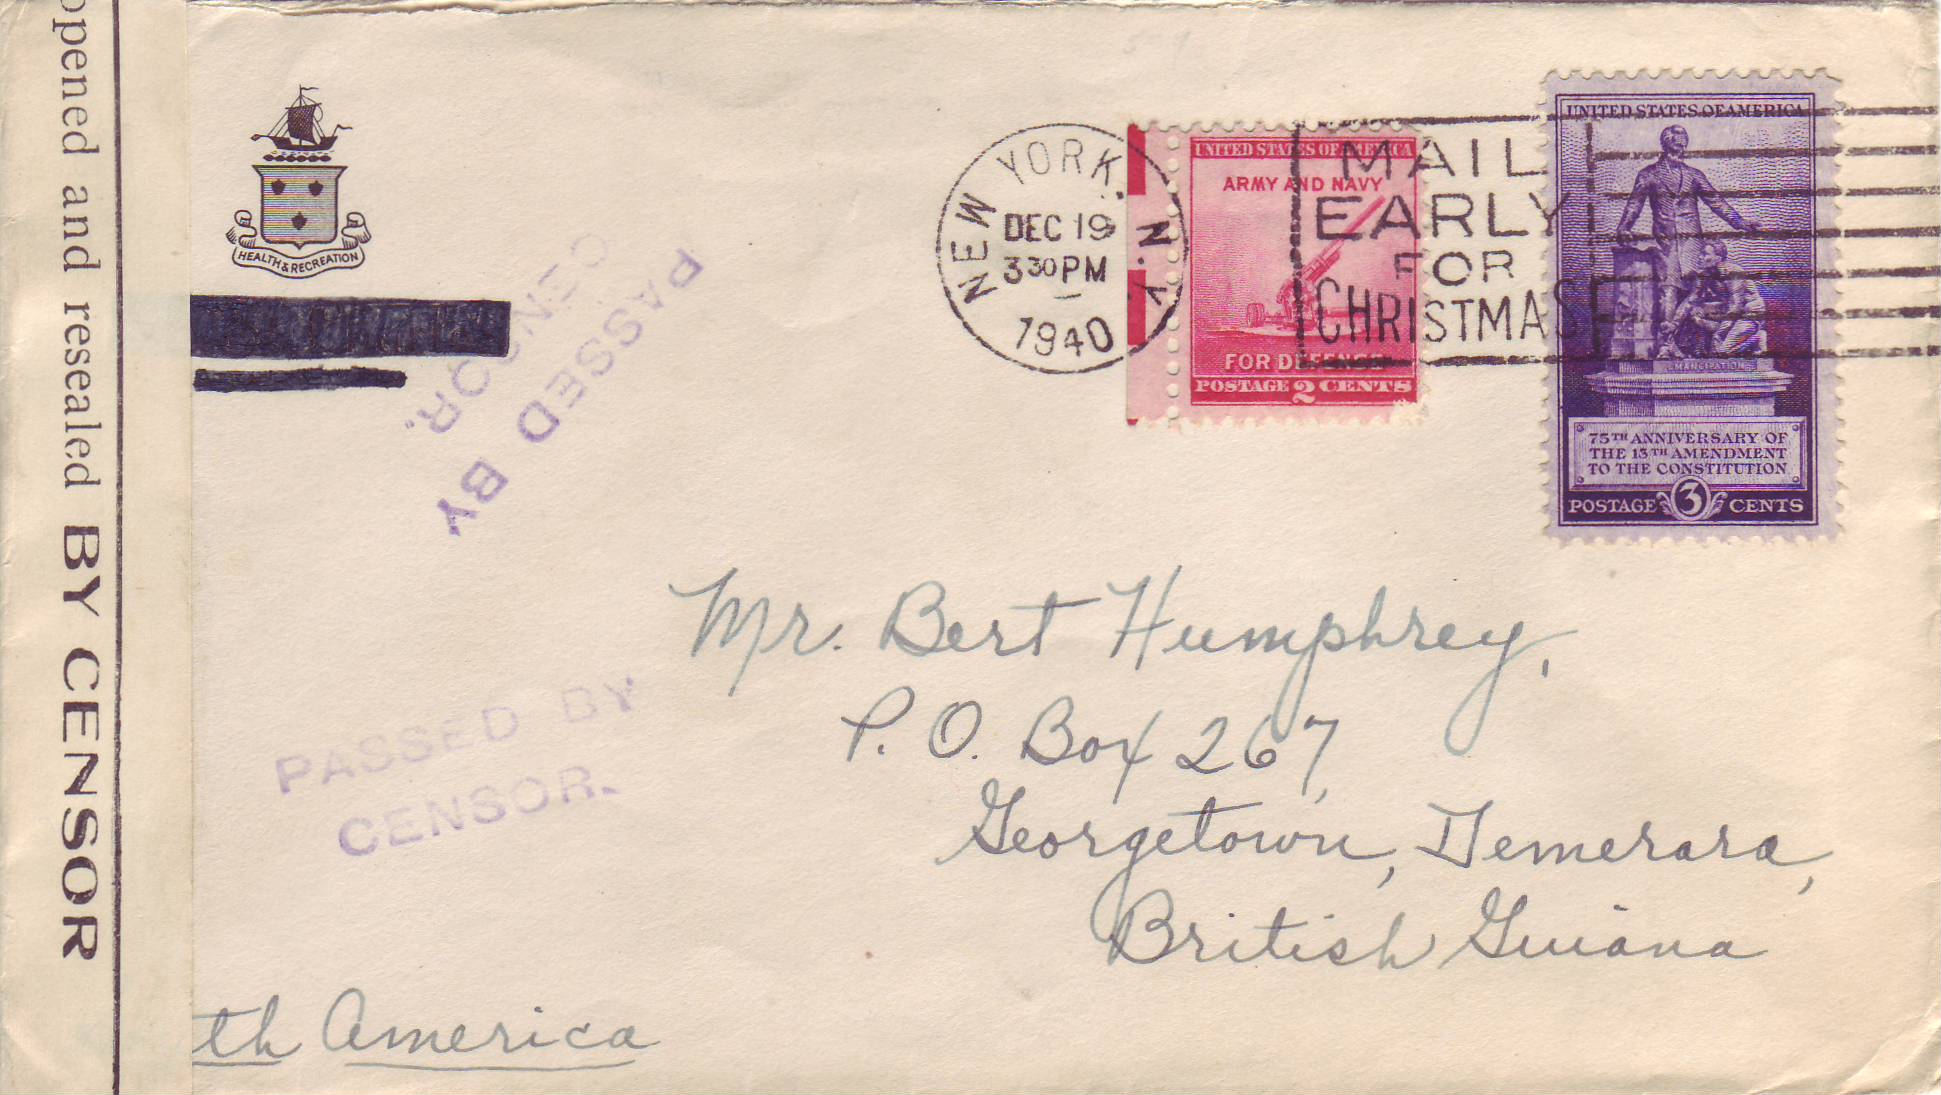 opened and resealed BY CENSOR
HEALTH & RECREATION
PASSED BY
CENSOR.
NEW YORK, N.Y.
DEC 19
3 30 PM
1940
MAIL
EARLY
FOR
CHRISTMAS
UNITED STATES OF AMERICA
ARMY AND NAVY
FOR DEFENSE
POSTAGE 2 CENTS
UNITED STATES OF AMERICA
EMANCIPATION
75TH ANNIVERSARY OF
THE 13TH AMENDMENT
TO THE CONSTITUTION
POSTAGE 3 CENTS
Mr. Bert Humphrey,
P. O. Box 267,
Georgetown, Demerara,
British Guiana
PASSED BY
CENSOR.
th America